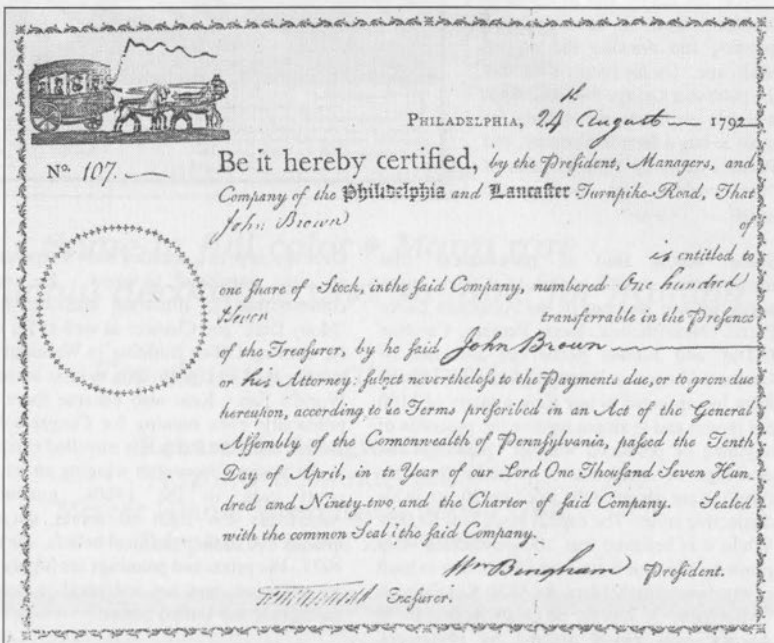 PHILADELPHIA, 24th August 1792
No. 107.
Be it hereby certified, by the President, Managers, and
Company of the Philadelphia and Lancaster Turnpike-Road, That
John Brown of
is entitled to
one Share of Stock, in the said Company, numbered One hundred
transferrable in the Presence
of the Treasurer, by he said John Brown
or his Attorney: subject nevertheless to the Payments due, or to grow due
hereupon, according to Terms prescribed in an Act of the General
Assembly of the Commonwealth of Pennsylvania, passed the Tenth
Day of April, in Year of our Lord One Thousand Seven Hun-
dred and Ninety-two and the Charter of said Company. Sealed
with the common Seal the said Company.
Wm Bingham President.
Treasurer.